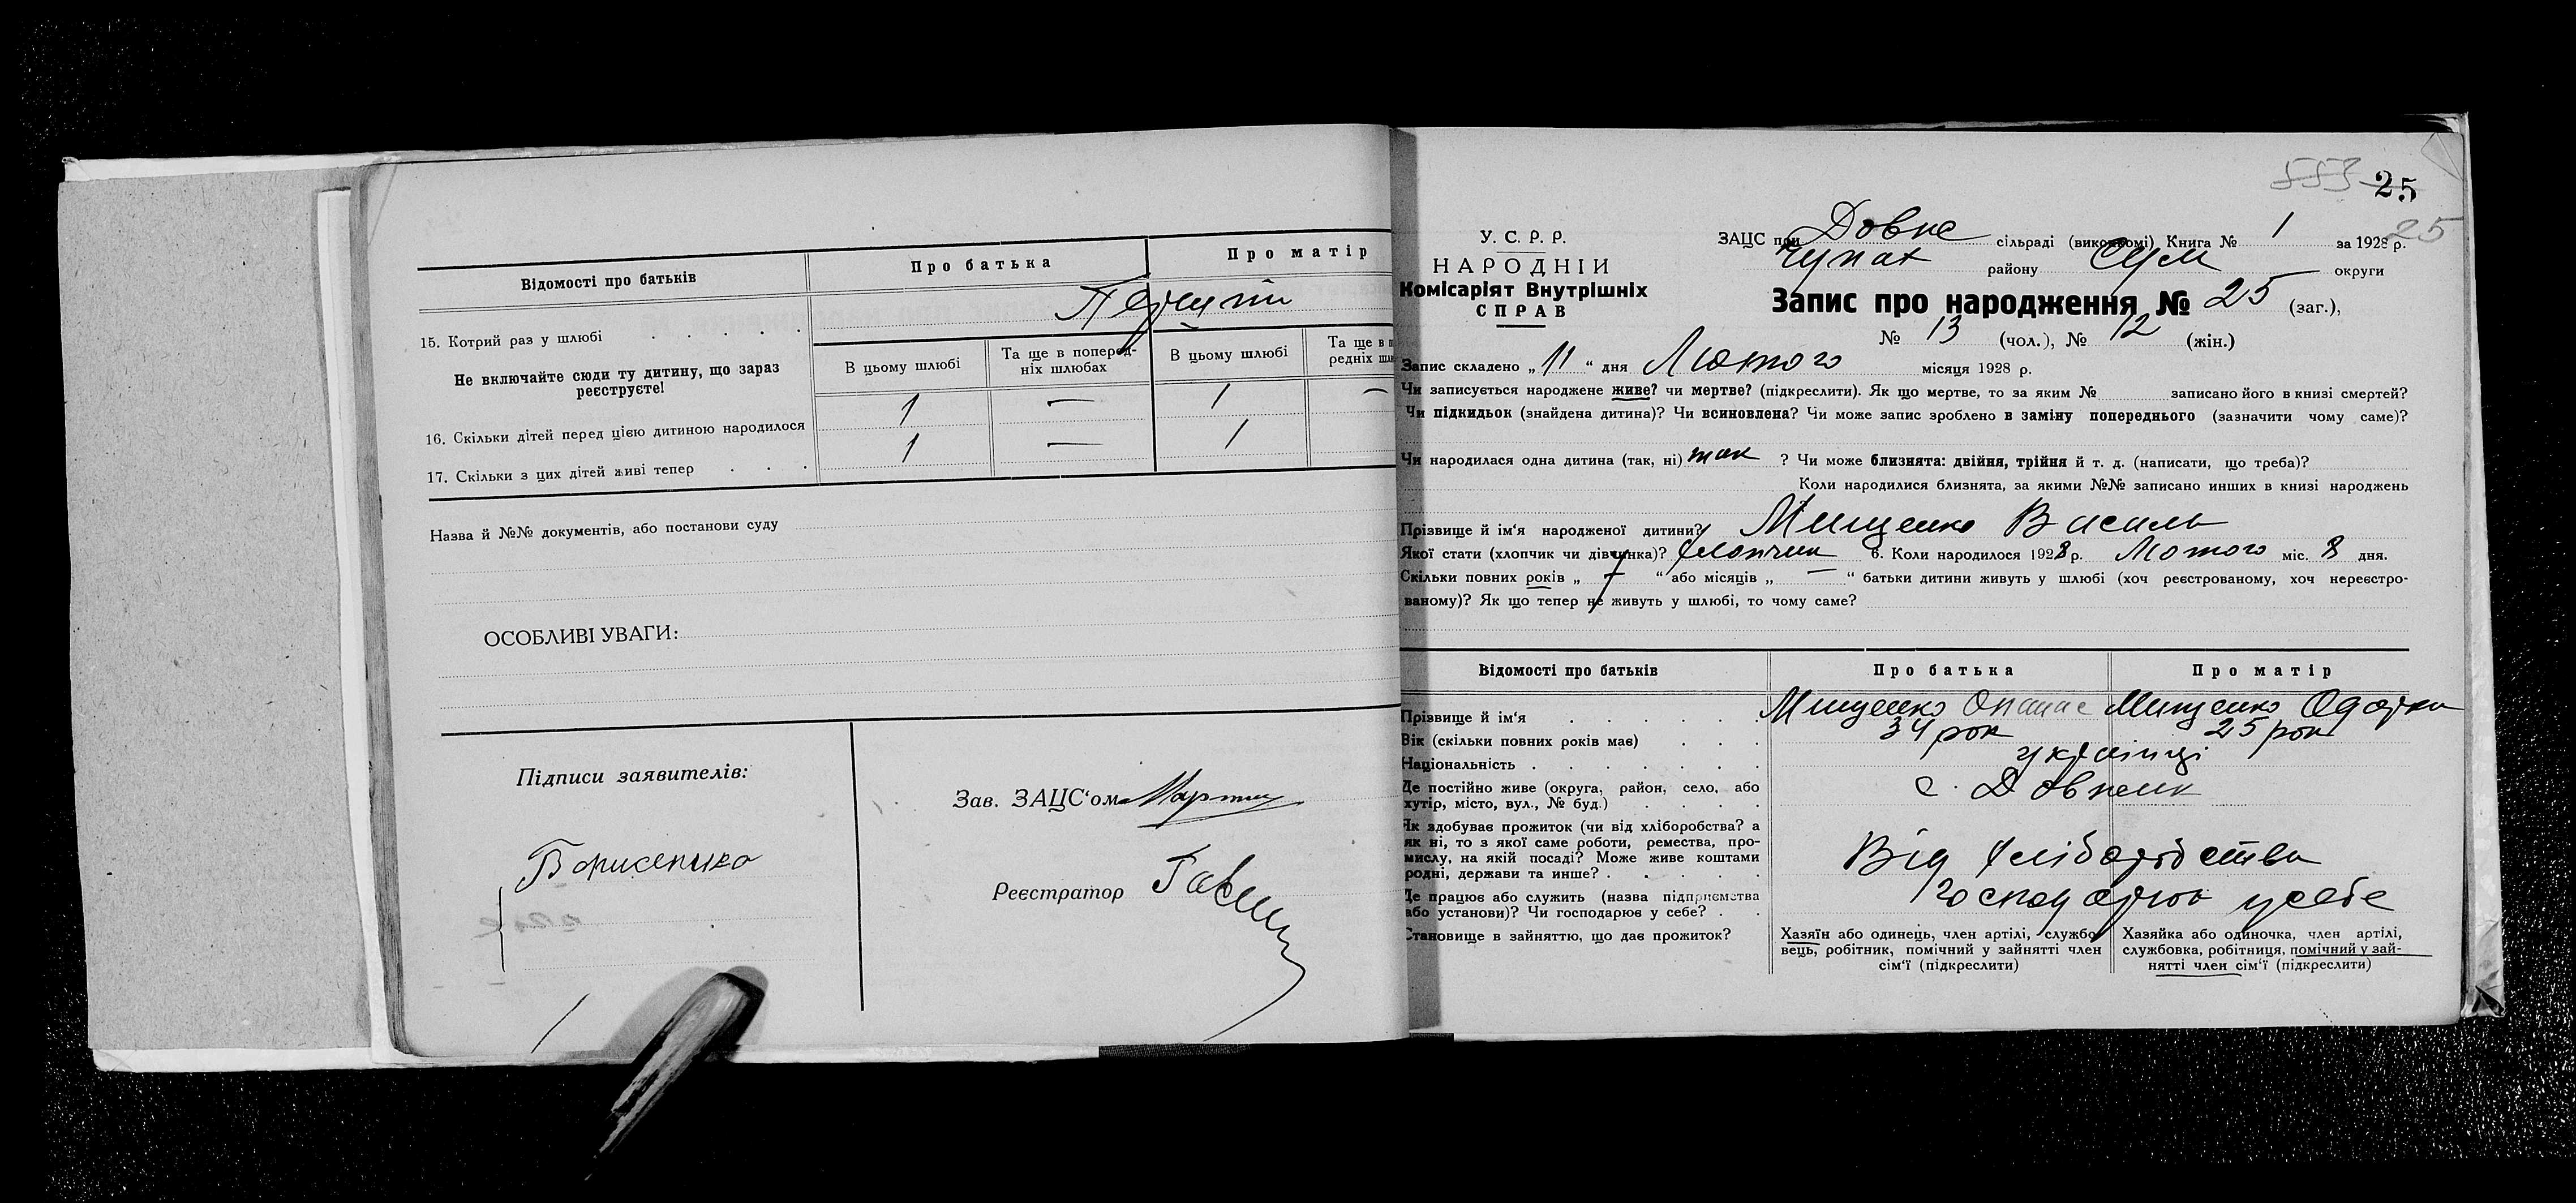 Відомості про батьків
Про батька
Про матір
15. Котрий раз у шлюбі
Не включайте сюди ту дитину, що зараз
реєструєте!
В цьому шлюбі
Та ще в поперед-
ніх шлюбах
В цьому шлюбі
Та ще в п
редніх шл
16. Скільки дітей перед цією дитиною народилося 1 — 1 —
17. Скільки з цих дітей живі тепер 1 — 1
Назва й №№ документів, або постанови суду
ОСОБЛИВІ УВАГИ:
Підписи заявителів:
Зав. ЗАЦС'ом
Реєстратор
553 25
25
У. С. Р. Р.
НАРОДНІЙ
Комісаріят Внутрішніх
СПРАВ
ЗАЦС при Довпе сільраді (виконкомі) Книга № 1 за 1928 р.
Чупах району Сум округи
Запис про народження № 25 (заг.),
№ 13 (чол.), № 12 (жін.)
Запис складено „ 11 “ дня Лютого місяця 1928 р.
Чи записується народжене живе? чи мертве? (підкреслити). Як що мертве, то за яким № записано його в книзі смертей?
Чи підкидьок (знайдена дитина)? Чи всиновлена? Чи може запис зроблено в заміну попереднього (зазначити чому саме)?
Чи народилася одна дитина (так, ні) так ? Чи може близнята: двійня, трійня й т. д. (написати, що треба)?
Коли народилися близнята, за якими №№ записано инших в книзі народжень
Прізвище й ім'я народженої дитини? Мищенко Василь
Якої стати (хлопчик чи дівчинка)? хлопчик 6. Коли народилося 1928 р. Лютого міс. 8 дня.
Скільки повних років „ 7 “ або місяців „ — “ батьки дитини живуть у шлюбі (хоч реєстрованому, хоч нереєстро-
ваному)? Як що тепер не живуть у шлюбі, то чому саме?
Відомості про батьків
Про батька
Про матір
Прізвище й ім'я Мищенко Опанас Мищенко Одарка
Вік (скільки повних років має) 34 рок 25 рок
Національність українці
Де постійно живе (округа, район, село, або
хутір, місто, вул., № буд.) с. Довпень
Як здобуває прожиток (чи від хліборобства? а
як ні, то з якої саме роботи, ремества, про-
мислу, на якій посаді? Може живе коштами
родні, держави та инше? Від хліборобства
Де працює або служить (назва підприємства
або установи)? Чи господарює у себе? Господарюю у себе
Становище в зайняттю, що дає прожиток?
Хазяїн або одинець, член артілі, службо-
вець, робітник, помічний у зайнятті член
сім'ї (підкреслити)
Хазяйка або одиночка, член артілі,
службовка, робітниця, помічний у зай-
нятті член сім'ї (підкреслити)